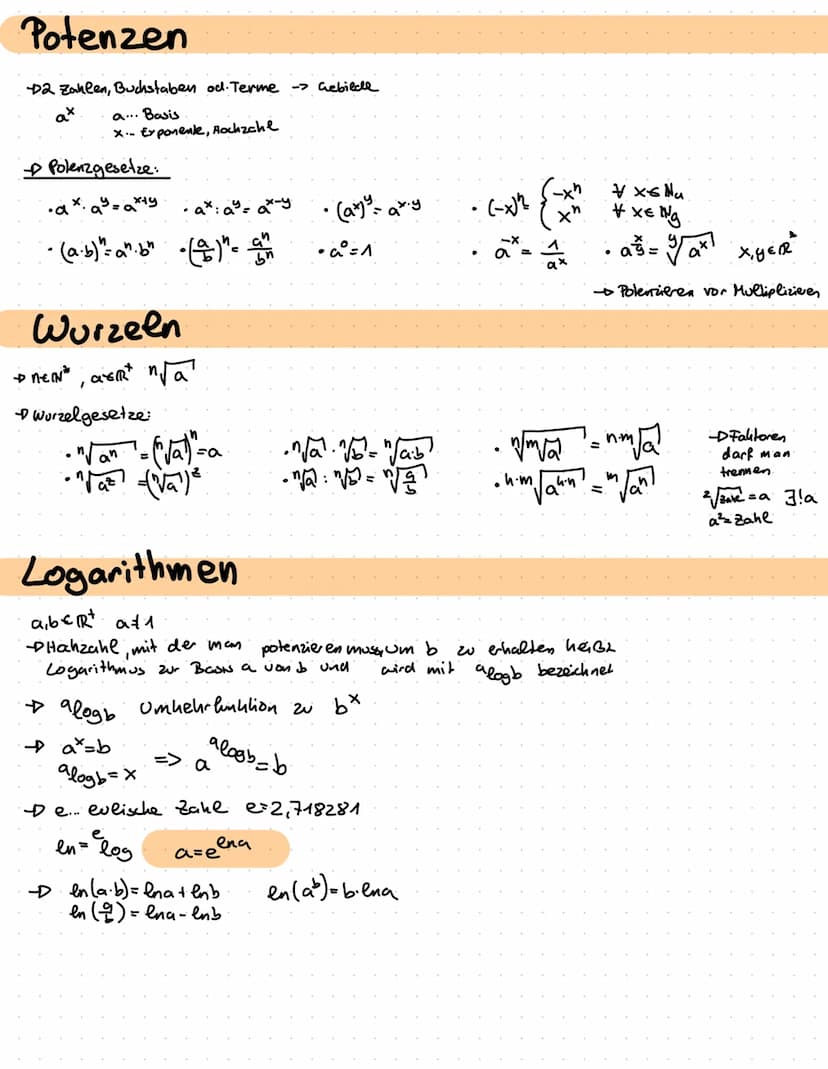 Potenzen
→ 2 Zahlen, Buchstaben od. Terme → Gebilde
aˣ a... Basis
x... Exponente, Hochzahl
→ Potenzgesetze:
• aˣ · aʸ = aˣ⁺ʸ • aˣ : aʸ = aˣ⁻ʸ • (aˣ)ʸ = aˣ·ʸ • (-x)ⁿ = { -xⁿ ∀ x ∈ ℕu
xⁿ ∀ x ∈ ℕg
• (a·b)ⁿ = aⁿ·bⁿ • (a/b)ⁿ = aⁿ/bⁿ • a⁰ = 1 • a⁻ˣ = 1/aˣ • a^(x/y) = ʸ√(aˣ) x, y ∈ ℝ
→ Potenzieren vor Multiplizieren
Wurzeln
→ n ∈ ℕ*, a ∈ ℝ⁺ ⁿ√a
→ Wurzelgesetze:
• ⁿ√(aⁿ) = (ⁿ√a)ⁿ = a • ⁿ√a · ⁿ√b = ⁿ√(a·b) • ⁿ√(ᵐ√a) = ⁿ·ᵐ√a
• ⁿ√(aᶻ) = (ⁿ√a)ᶻ • ⁿ√a : ⁿ√b = ⁿ√(a/b) • ⁿ·ᵐ√(aʰ·ⁿ) = ᵐ√(aʰ)
→ Faktoren
darf man
trennen
²√Zahl = a ∃!a
a² = Zahl
Logarithmen
a, b ∈ ℝ⁺ a ≠ 1
→ Hochzahl, mit der man potenzieren muss, um b zu erhalten heißt
Logarithmus zur Basis a von b und wird mit ᵃlogb bezeichnet
→ ᵃlogb Umkehrfunktion zu bˣ
→ aˣ = b
ᵃlogb = x => a^(ᵃlogb) = b
→ e... eulische Zahl e = 2,718281
ln = ᵉlog a = e^(lna)
→ ln(a·b) = lna + lnb ln(aᵇ) = b·lna
ln(a/b) = lna - lnb